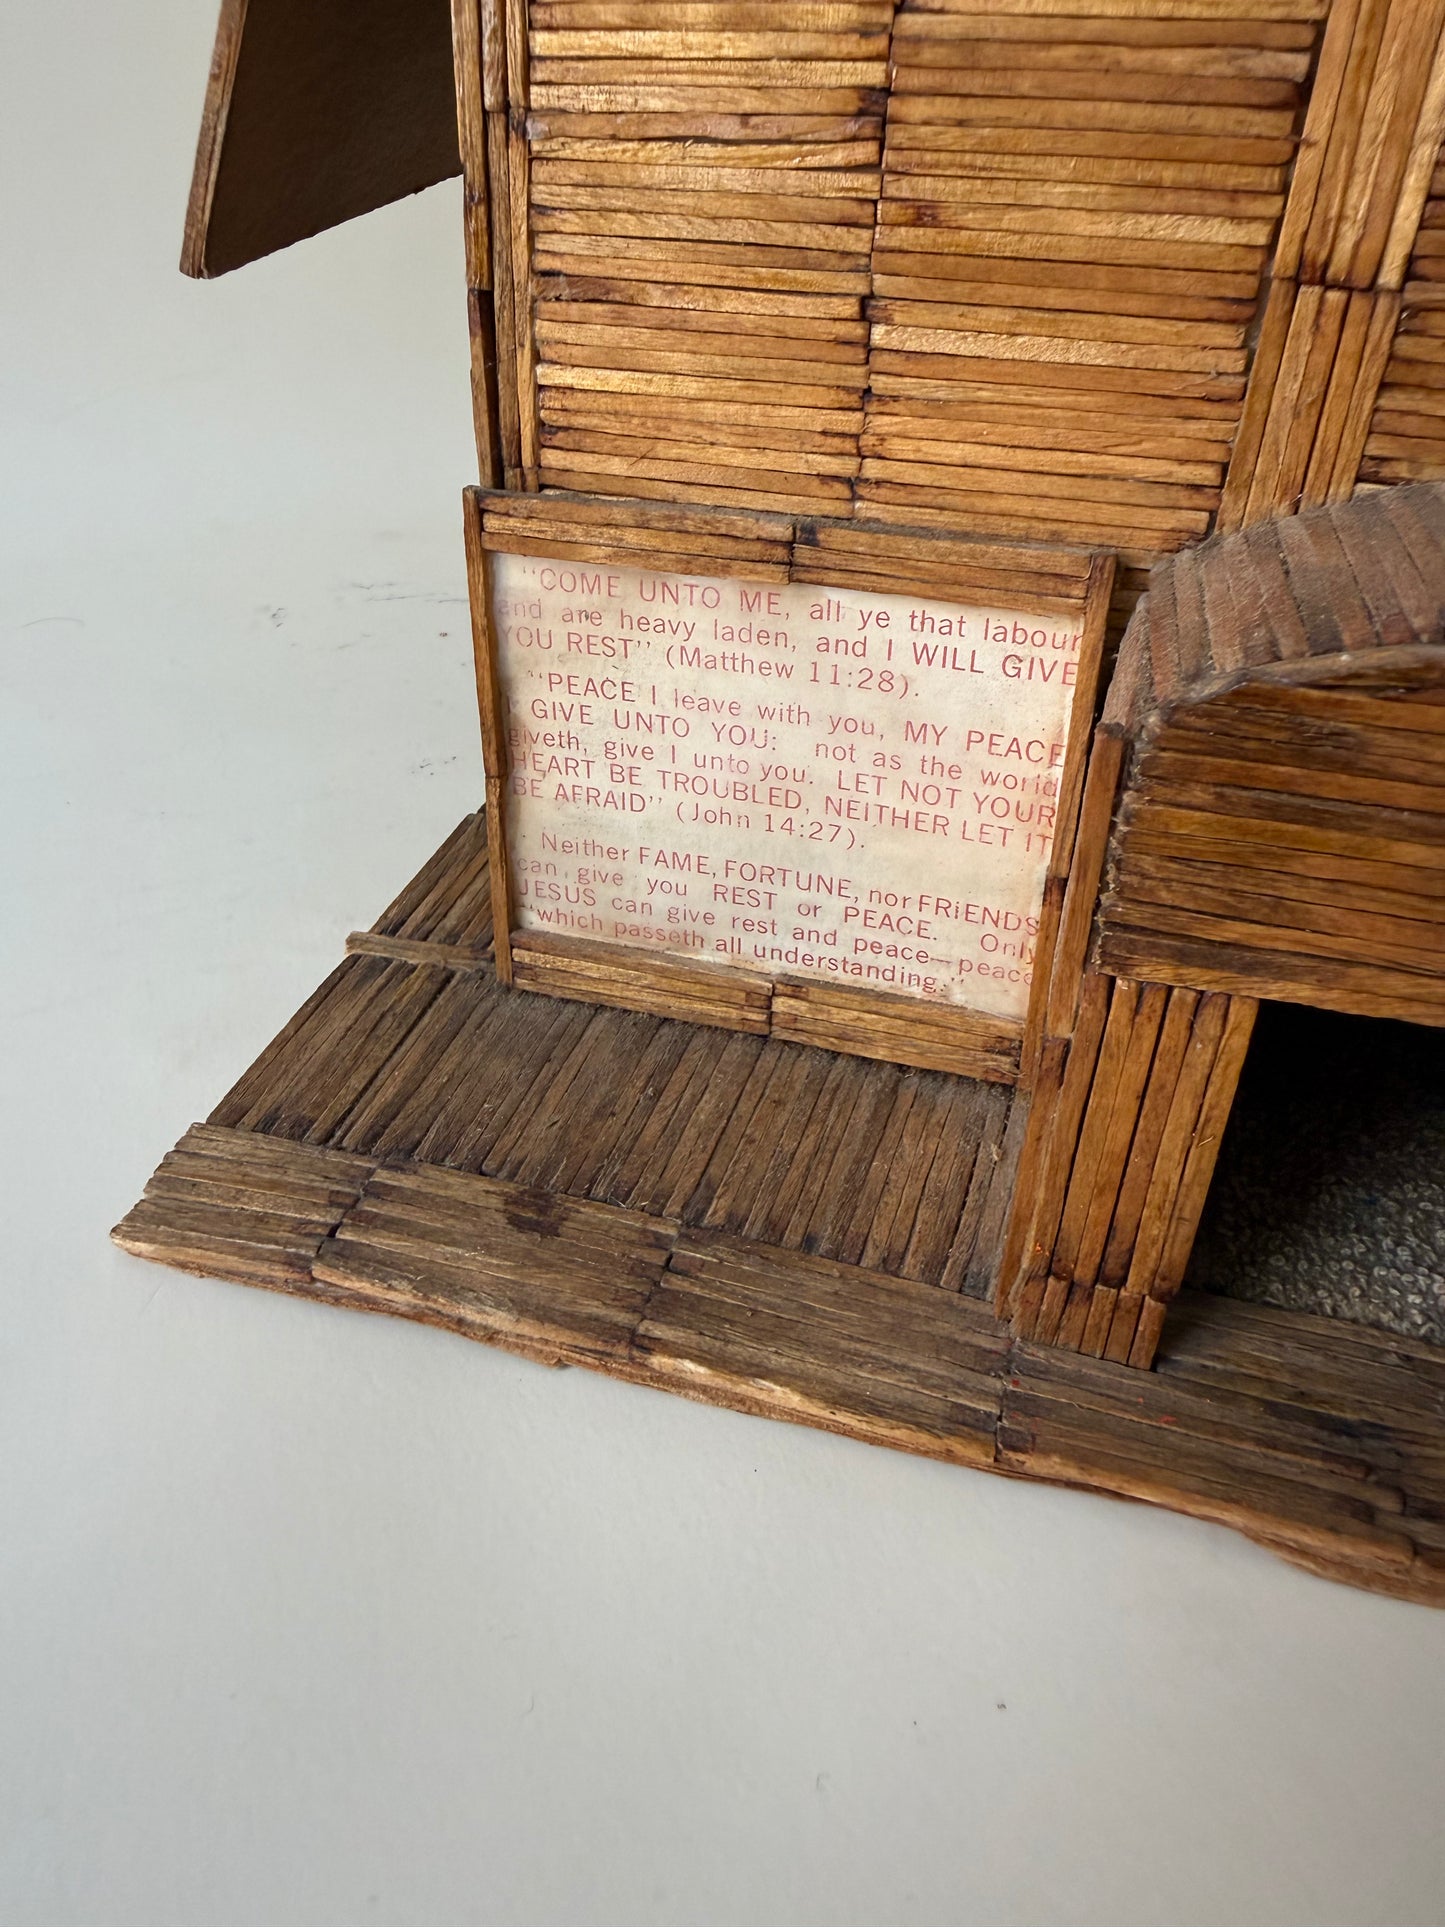 "COME UNTO ME, all ye that labour
and are heavy laden, and I WILL GIVE
YOU REST" (Matthew 11:28).
"PEACE I leave with you, MY PEACE
I GIVE UNTO YOU: not as the world
giveth, give I unto you. LET NOT YOUR
HEART BE TROUBLED, NEITHER LET IT
BE AFRAID" (John 14:27).
Neither FAME, FORTUNE, nor FRiENDS
can give you REST or PEACE. Only
JESUS can give rest and peace—peace
"which passeth all understanding."